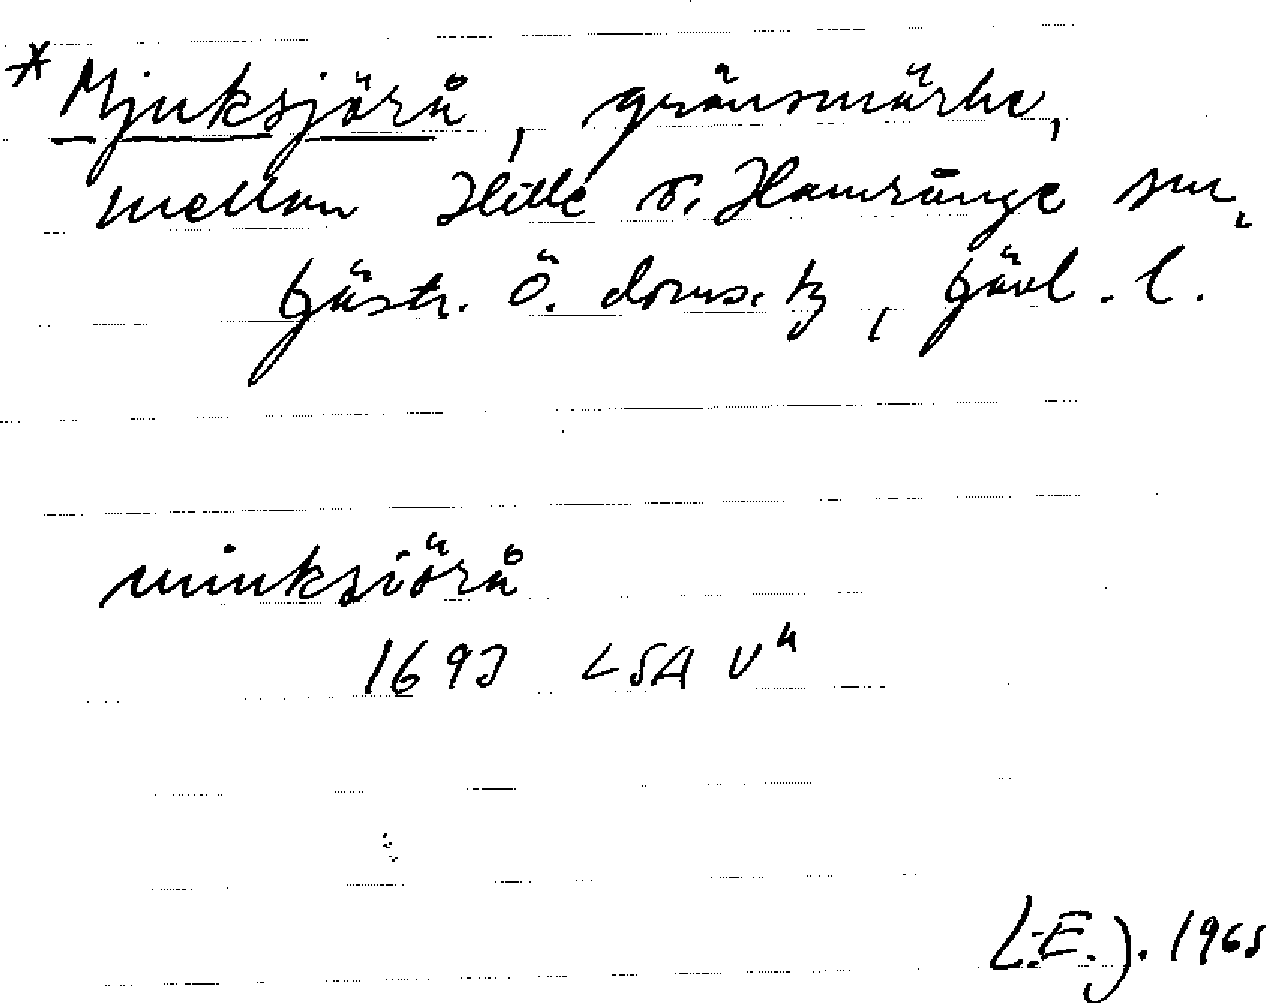 * Mjuksjörå, gränsmärke,
mellan Hille o. Hamrånge snr,
Gästr. Ö. doms. tg, Gävl. l.
miuksiörå
1693 LSA V
L.E.J. 1965